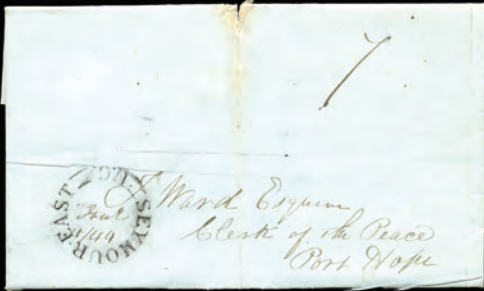 7
SEYMOUR-EAST U.C.
Ward Esquire
Clerk of the Peace
Port Hope